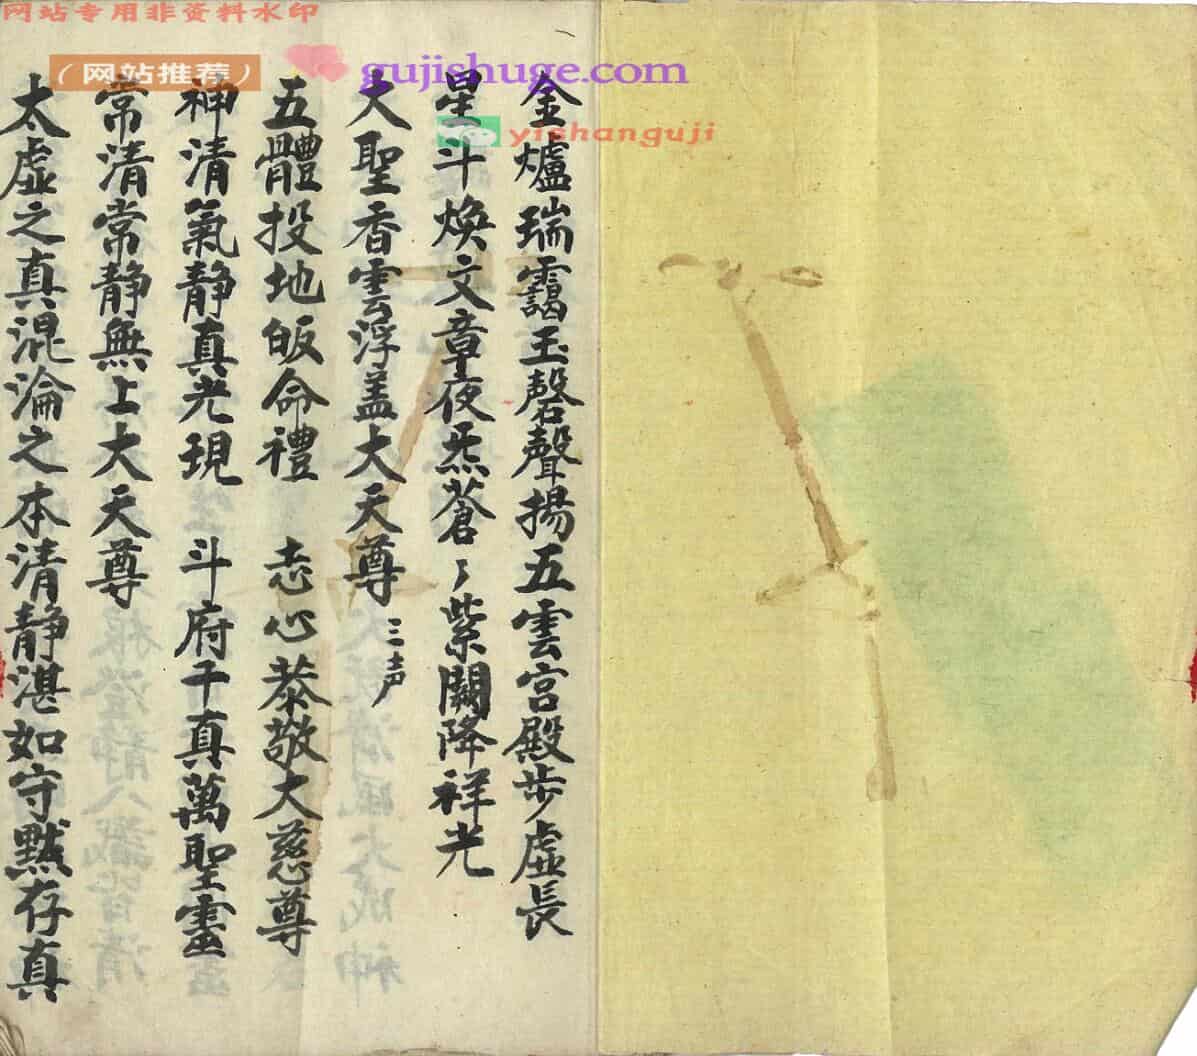 网站专用非资料水印
（网站推荐）
gujishuge.com
yishanguji
金爐瑞靄玉磬聲揚五雲宮殿步虛長
星斗煥文章夜炁蒼〻紫闕降祥光
大聖香雲浮盖大天尊 三声
五體投地皈命禮 志心恭敬大慈尊
神清氣靜真光現 斗府千真萬聖靈
常清常靜無上大天尊
太虛之真混淪之本清靜湛如守默存真